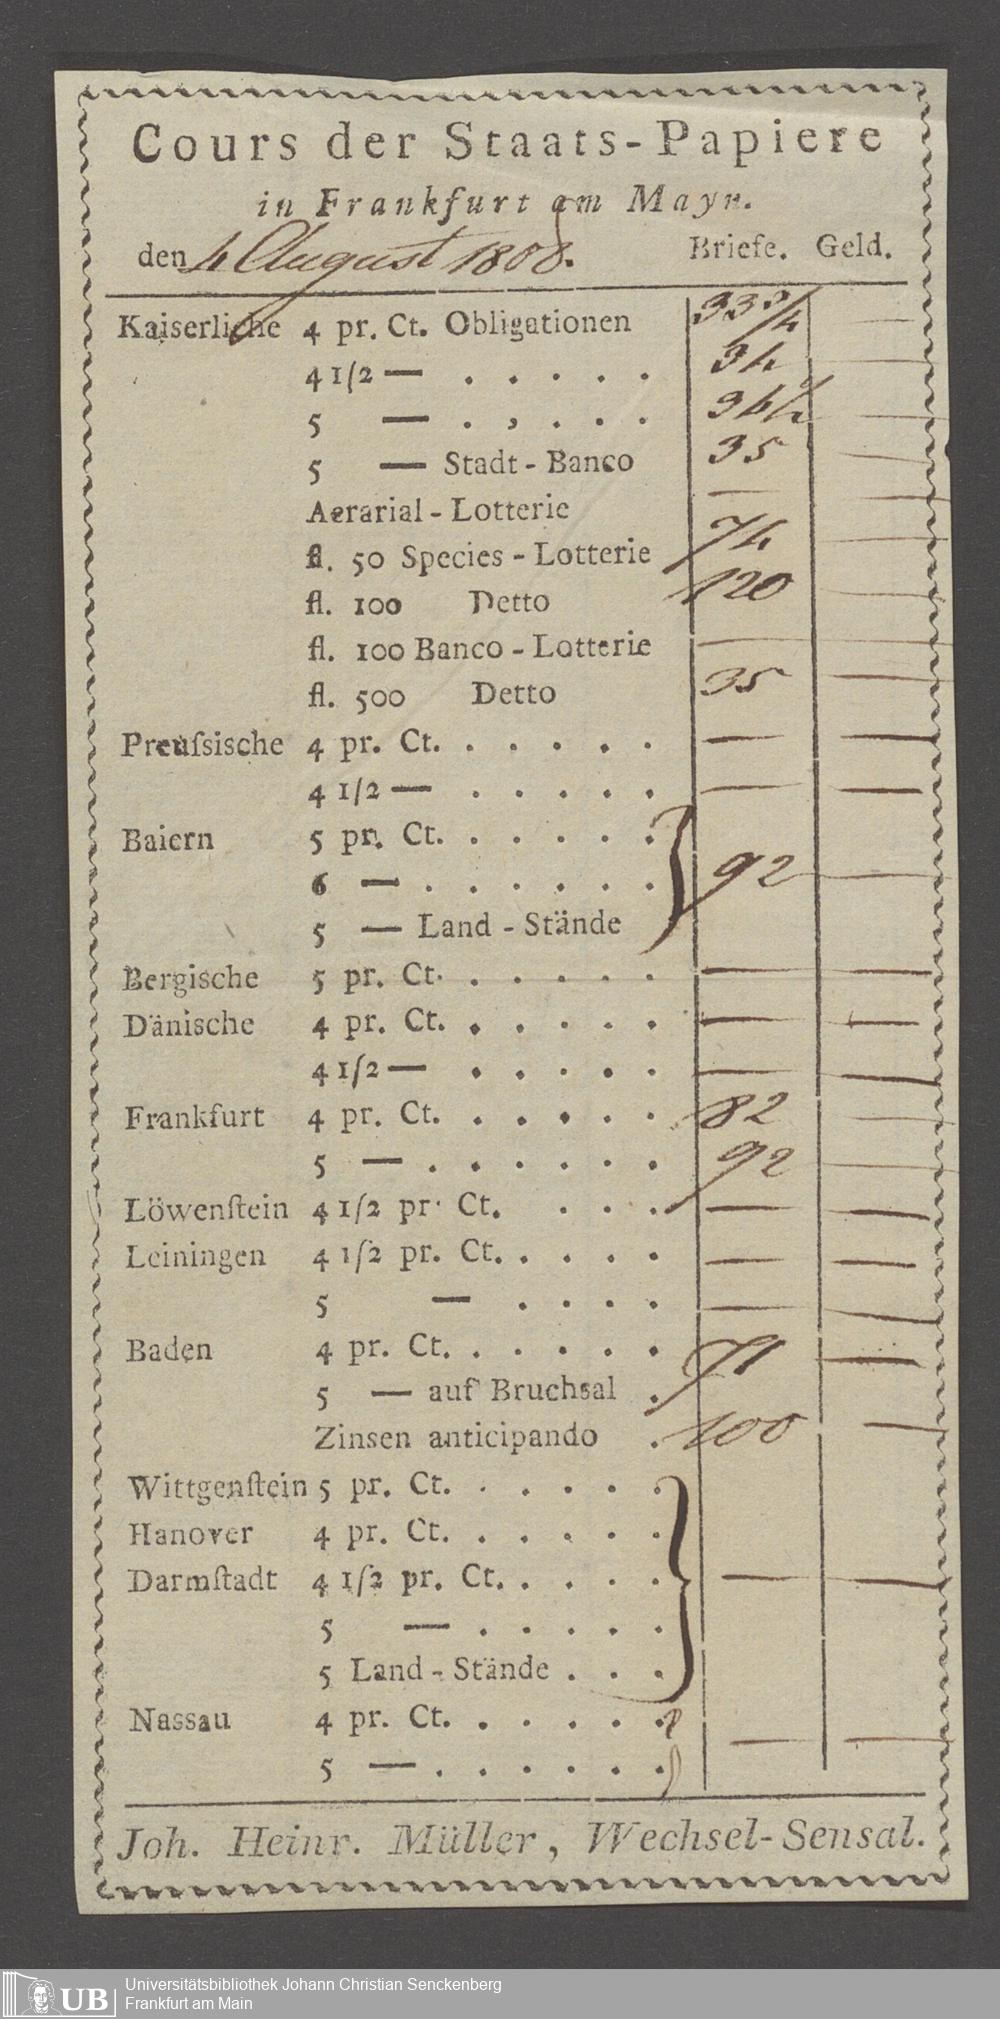 Cours der Staats-Papiere
in Frankfurt am Mayn.
den 4 August 1808. Briefe. Geld.
Kaiserliche 4 pr. Ct. Obligationen 33 3/4 —
4 1/2 — . . . . . 34 —
5 — . , . . . —
5 — Stadt-Banco 35 —
Aerarial-Lotterie — —
fl. 50 Species-Lotterie 74 —
fl. 100 Detto 120 —
fl. 100 Banco-Lotterie — —
fl. 500 Detto 35 —
Preuſsische 4 pr. Ct. . . . . . — —
4 1/2 — . . . . . — —
Baiern 5 pr. Ct. . . . . .
6 — . . . . . . 92 —
5 — Land-Stände
Bergische 5 pr. Ct. . . . . . — —
Dänische 4 pr. Ct. . . . . . — —
4 1/2 — . . . . . — —
Frankfurt 4 pr. Ct. . . . . . 82 —
5 — . . . . . . 92 —
Löwenſtein 4 1/2 pr. Ct. . . . — —
Leiningen 4 1/2 pr. Ct. . . . . — —
5 — . . . . — —
Baden 4 pr. Ct. . . . . . 71 —
5 — auf Bruchsal .
Zinsen anticipando . 100 —
Wittgenſtein 5 pr. Ct. . . . . .
Hanover 4 pr. Ct. . . . . .
Darmſtadt 4 1/2 pr. Ct. . . . . — —
5 — . . . . .
5 Land-Stände . . .
Nassau 4 pr. Ct. . . . . . — —
5 — . . . . . .
Joh. Heinr. Müller, Wechsel-Sensal.
UB Universitätsbibliothek Johann Christian Senckenberg
Frankfurt am Main